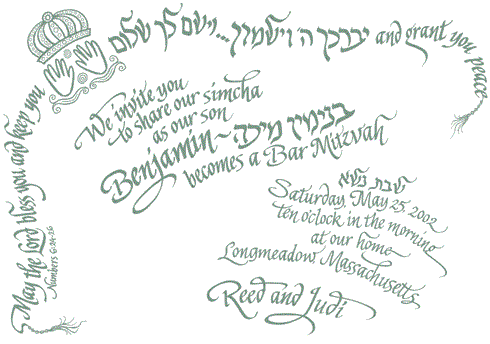 May the Lord bless you and keep you
Numbers 6:24-26
יברכך ה וישמרך...וישם לך שלום
and grant you peace
We invite you
to share our simcha
as our son
Benjamin ~ בנימין מיכה
becomes a Bar Mitzvah
שבת נשא
Saturday, May 25, 2002
ten o'clock in the morning
at our home
Longmeadow, Massachusetts
Reed and Judi